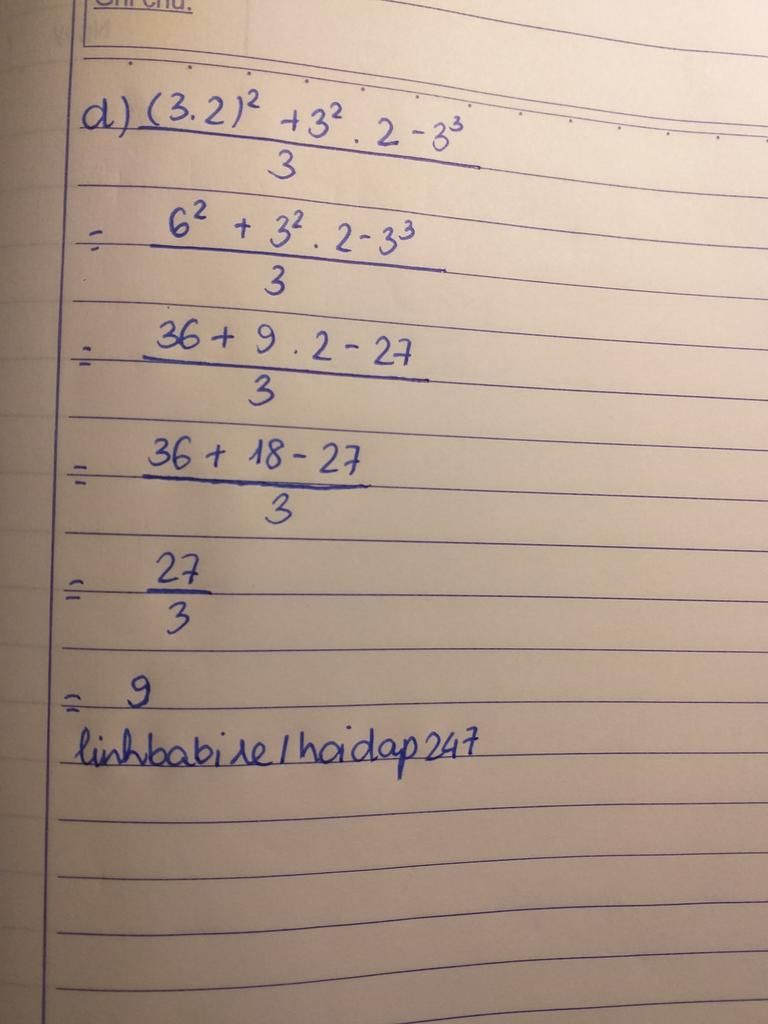 Ghi chú:
d) (3.2)² + 3² . 2 - 3³ / 3
= 6² + 3² . 2 - 3³ / 3
= 36 + 9 . 2 - 27 / 3
= 36 + 18 - 27 / 3
= 27 / 3
= 9
linhbabire/hoidap247